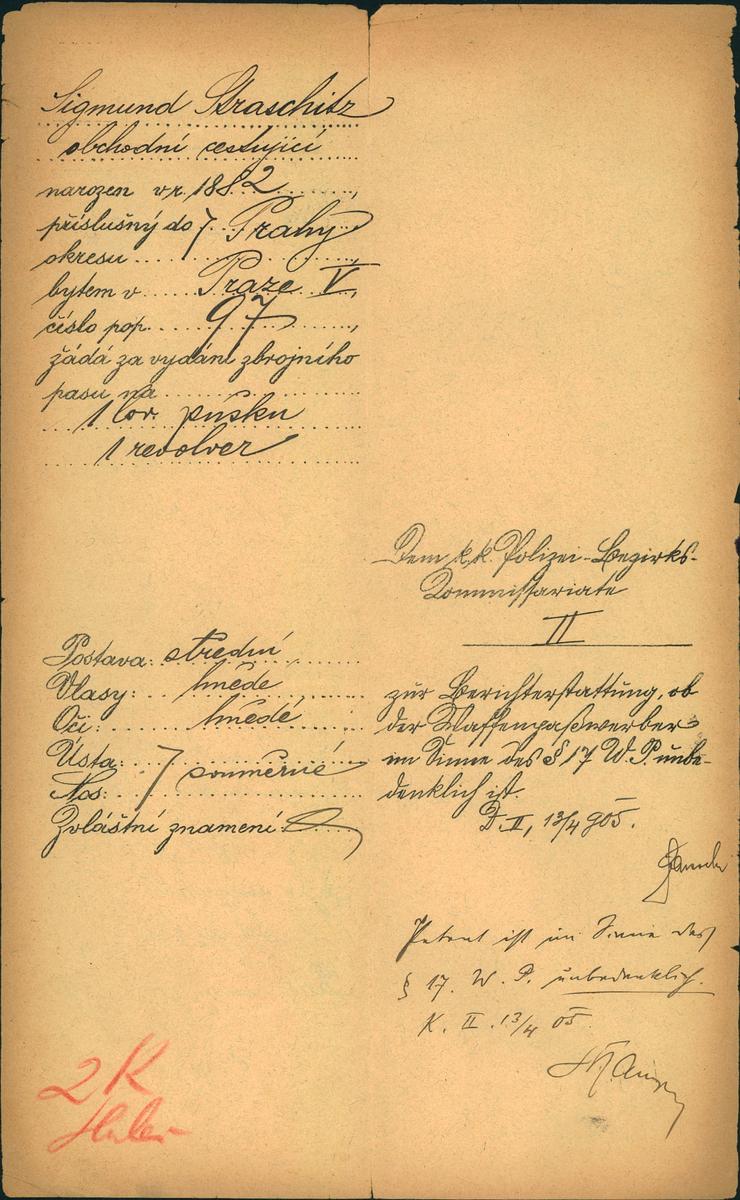 Sigmund Straschitz
obchodní cestující
narozen v r. 1882,
příslušný do Prahy
okresu
bytem v Praze V,
číslo pop. 97,
žádá za vydání zbrojního
pasu na
1 lov. pušku
1 revolver
Postava: střední
Vlasy: hnědé
Oči: hnědé
Ústa: souměrné
Nos:
Zvláštní znamení: 0
Dem k.k. Polizei-Bezirks-
Kommissariate
II
zur Berichterstattung, ob
der Waffenpaßwerber
im Sinne des § 17 W. P. unbe-
denklich ist.
D. II, 13/4 905.
Petent ist im Sinne des
§ 17. W. P. unbedenklich.
K. II. 13/4 05
2 K